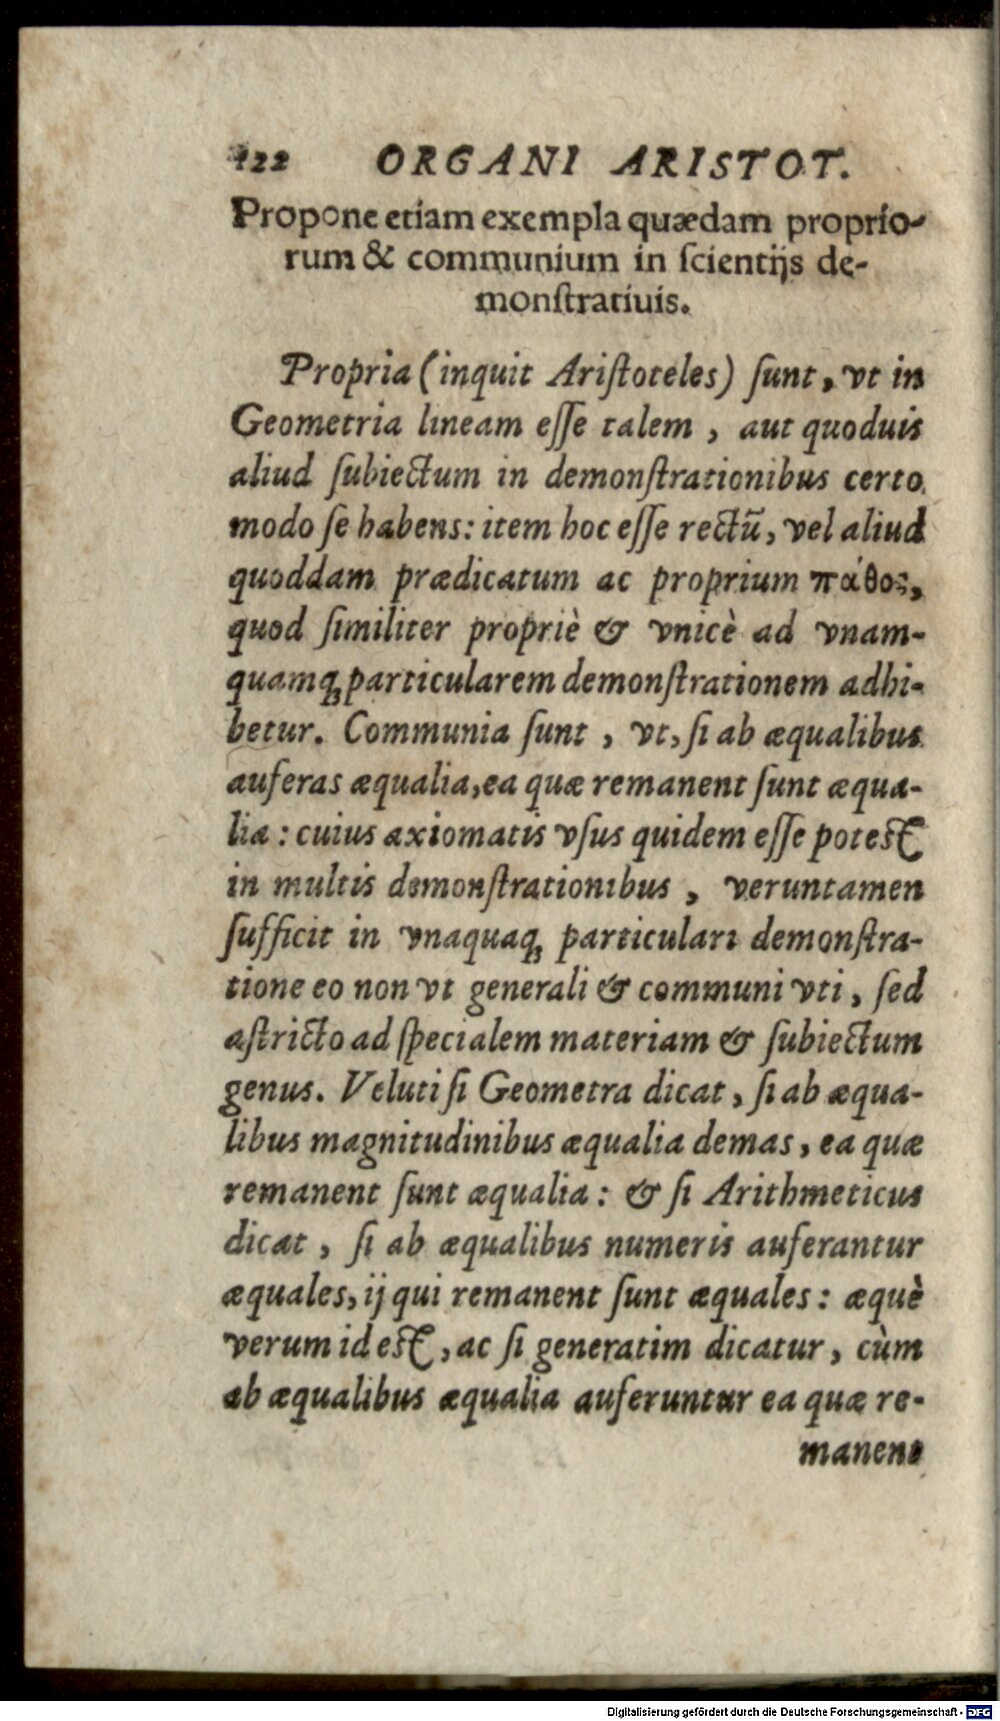 122 ORGANI ARISTOT.
Propone etiam exempla quædam proprio-
rum & communium in ſcientijs de-
monſtratiuis.
Propria (inquit Ariſtoteles) ſunt, vt in
Geometria lineam eſſe talem, aut quoduis
aliud ſubiectum in demonſtrationibus certo
modo ſe habens: item hoc eſſe rectū, vel aliud
quoddam prædicatum ac proprium πάθος,
quod ſimiliter propriè & vnicè ad vnam-
quamq; particularem demonſtrationem adhi-
betur. Communia ſunt, vt, ſi ab æqualibus
auferas æqualia, ea quæ remanent ſunt æqua-
lia: cuius axiomatis vſus quidem eſſe poteſt
in multis demonſtrationibus, veruntamen
ſufficit in vnaquaq; particulari demonſtra-
tione eo non vt generali & communi vti, ſed
aſtricto ad ſpecialem materiam & ſubiectum
genus. Veluti ſi Geometra dicat, ſi ab æqua-
libus magnitudinibus æqualia demas, ea quæ
remanent ſunt æqualia: & ſi Arithmeticus
dicat, ſi ab æqualibus numeris auferantur
æquales, ij qui remanent ſunt æquales: æquè
verum id eſt, ac ſi generatim dicatur, cùm
ab æqualibus æqualia auferuntur ea quæ re-
manent
Digitalisierung gefördert durch die Deutsche Forschungsgemeinschaft - DFG